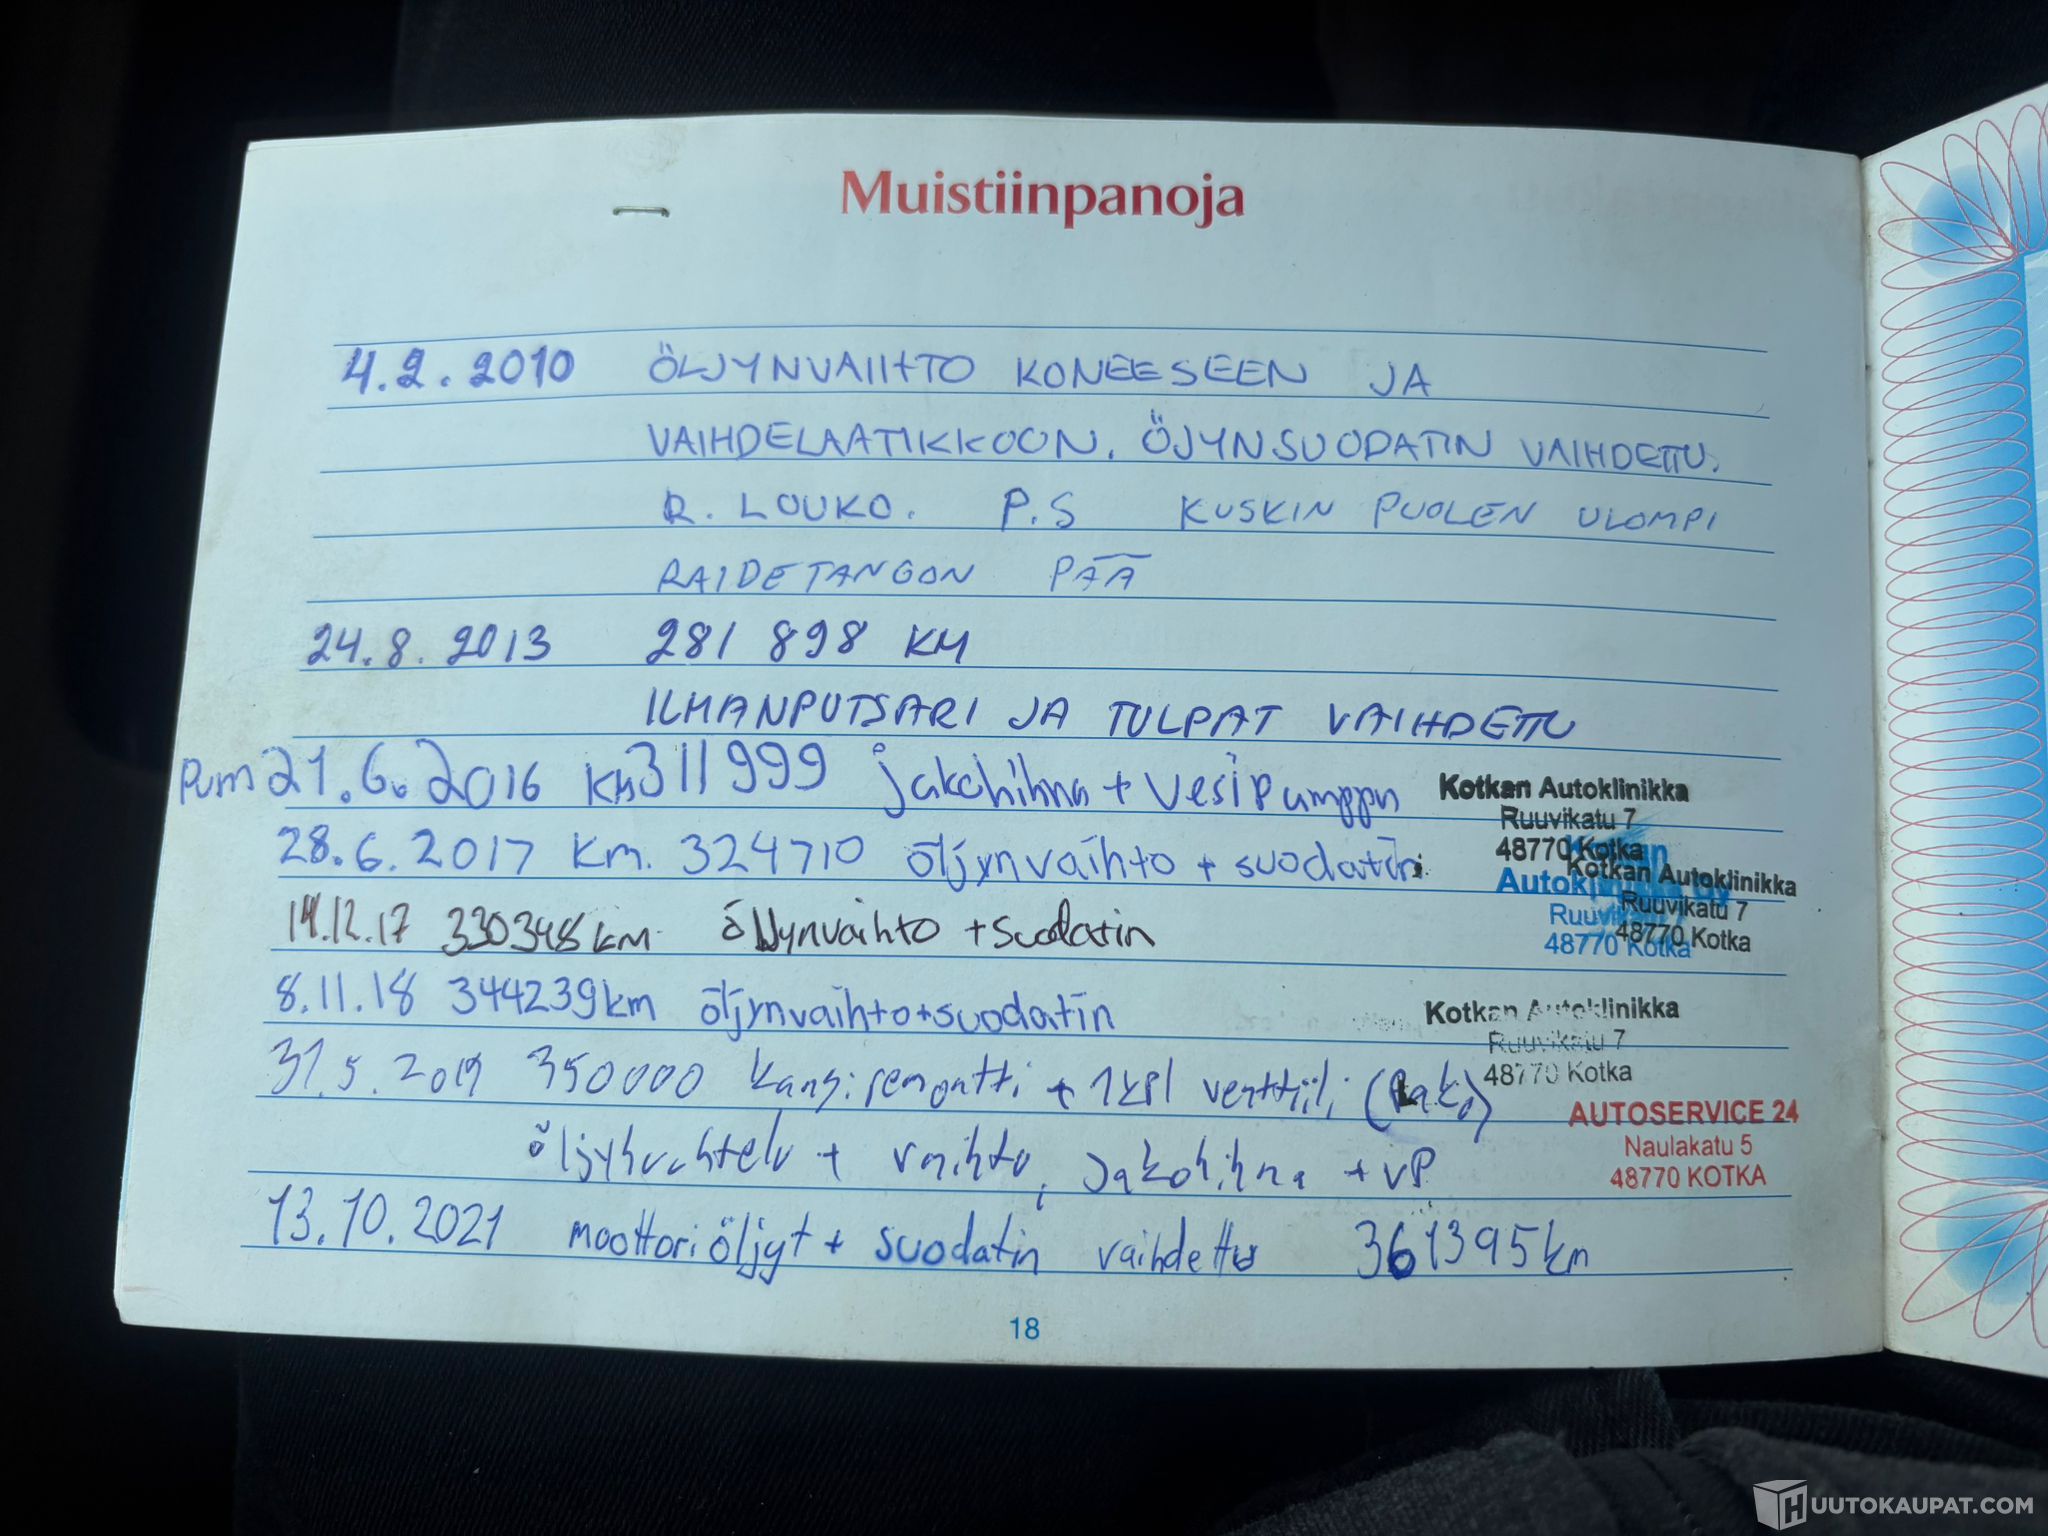 Muistiinpanoja
4.2.2010 ÖLJYNVAIHTO KONEESEEN JA
VAIHDELAATIKKOON. ÖJYNSUODATIN VAIHDETTU.
R. LOUKO. P.S KUSKIN PUOLEN ULOMPI
RAIDETANGON PÄÄ
24.8.2013 281 898 KM
ILMANPUTSARI JA TULPAT VAIHDETTU
Pvm 21.6.2016 KM 311999 jakohihna + vesipumppu
Kotkan Autoklinikka
Ruuvikatu 7
48770 Kotka
28.6.2017 Km. 324710 öljynvaihto + suodatin
Kotkan Autoklinikka
Ruuvikatu 7
48770 Kotka
48770 Kotka
14.12.17 330348km öljynvaihto + suodatin
8.11.18 344239km öljynvaihto+suodatin
Kotkan Autoklinikka
Ruuvikatu 7
48770 Kotka
31.5.2019 350000 kansiremontti + 1kpl venttiili (Pako)
AUTOSERVICE 24
Naulakatu 5
48770 KOTKA
öljyhuuhtelu + vaihto, Jakohihna + VP
13.10.2021 moottoriöljyt + suodatin vaihdettu 361395km
18
HUUTOKAUPAT.COM